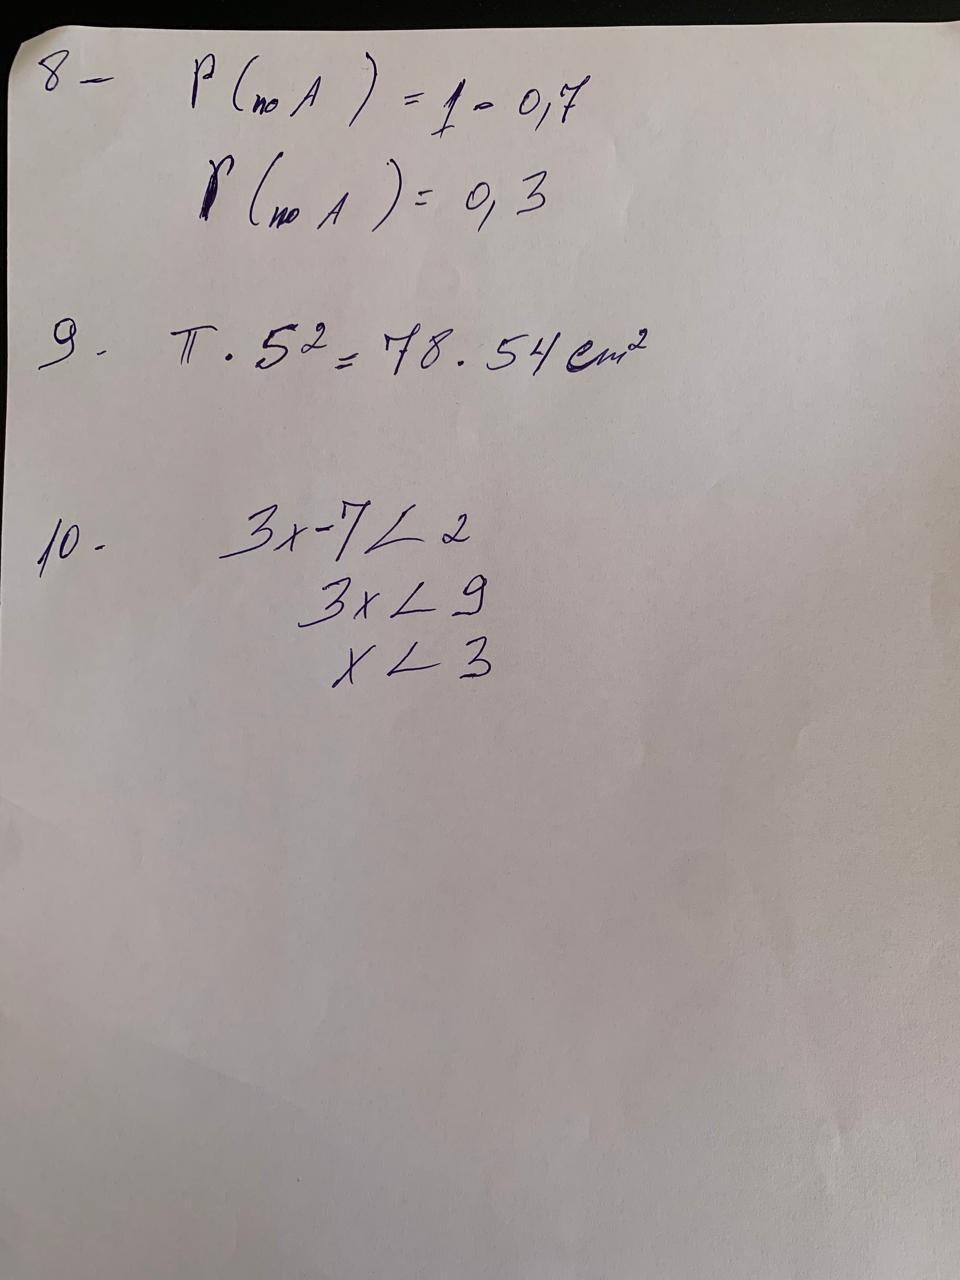 8 - P(no A) = 1 - 0,7
P(no A) = 0,3
9. π . 5² = 78.54 cm²
10. 3x-7 < 2
3x < 9
x < 3